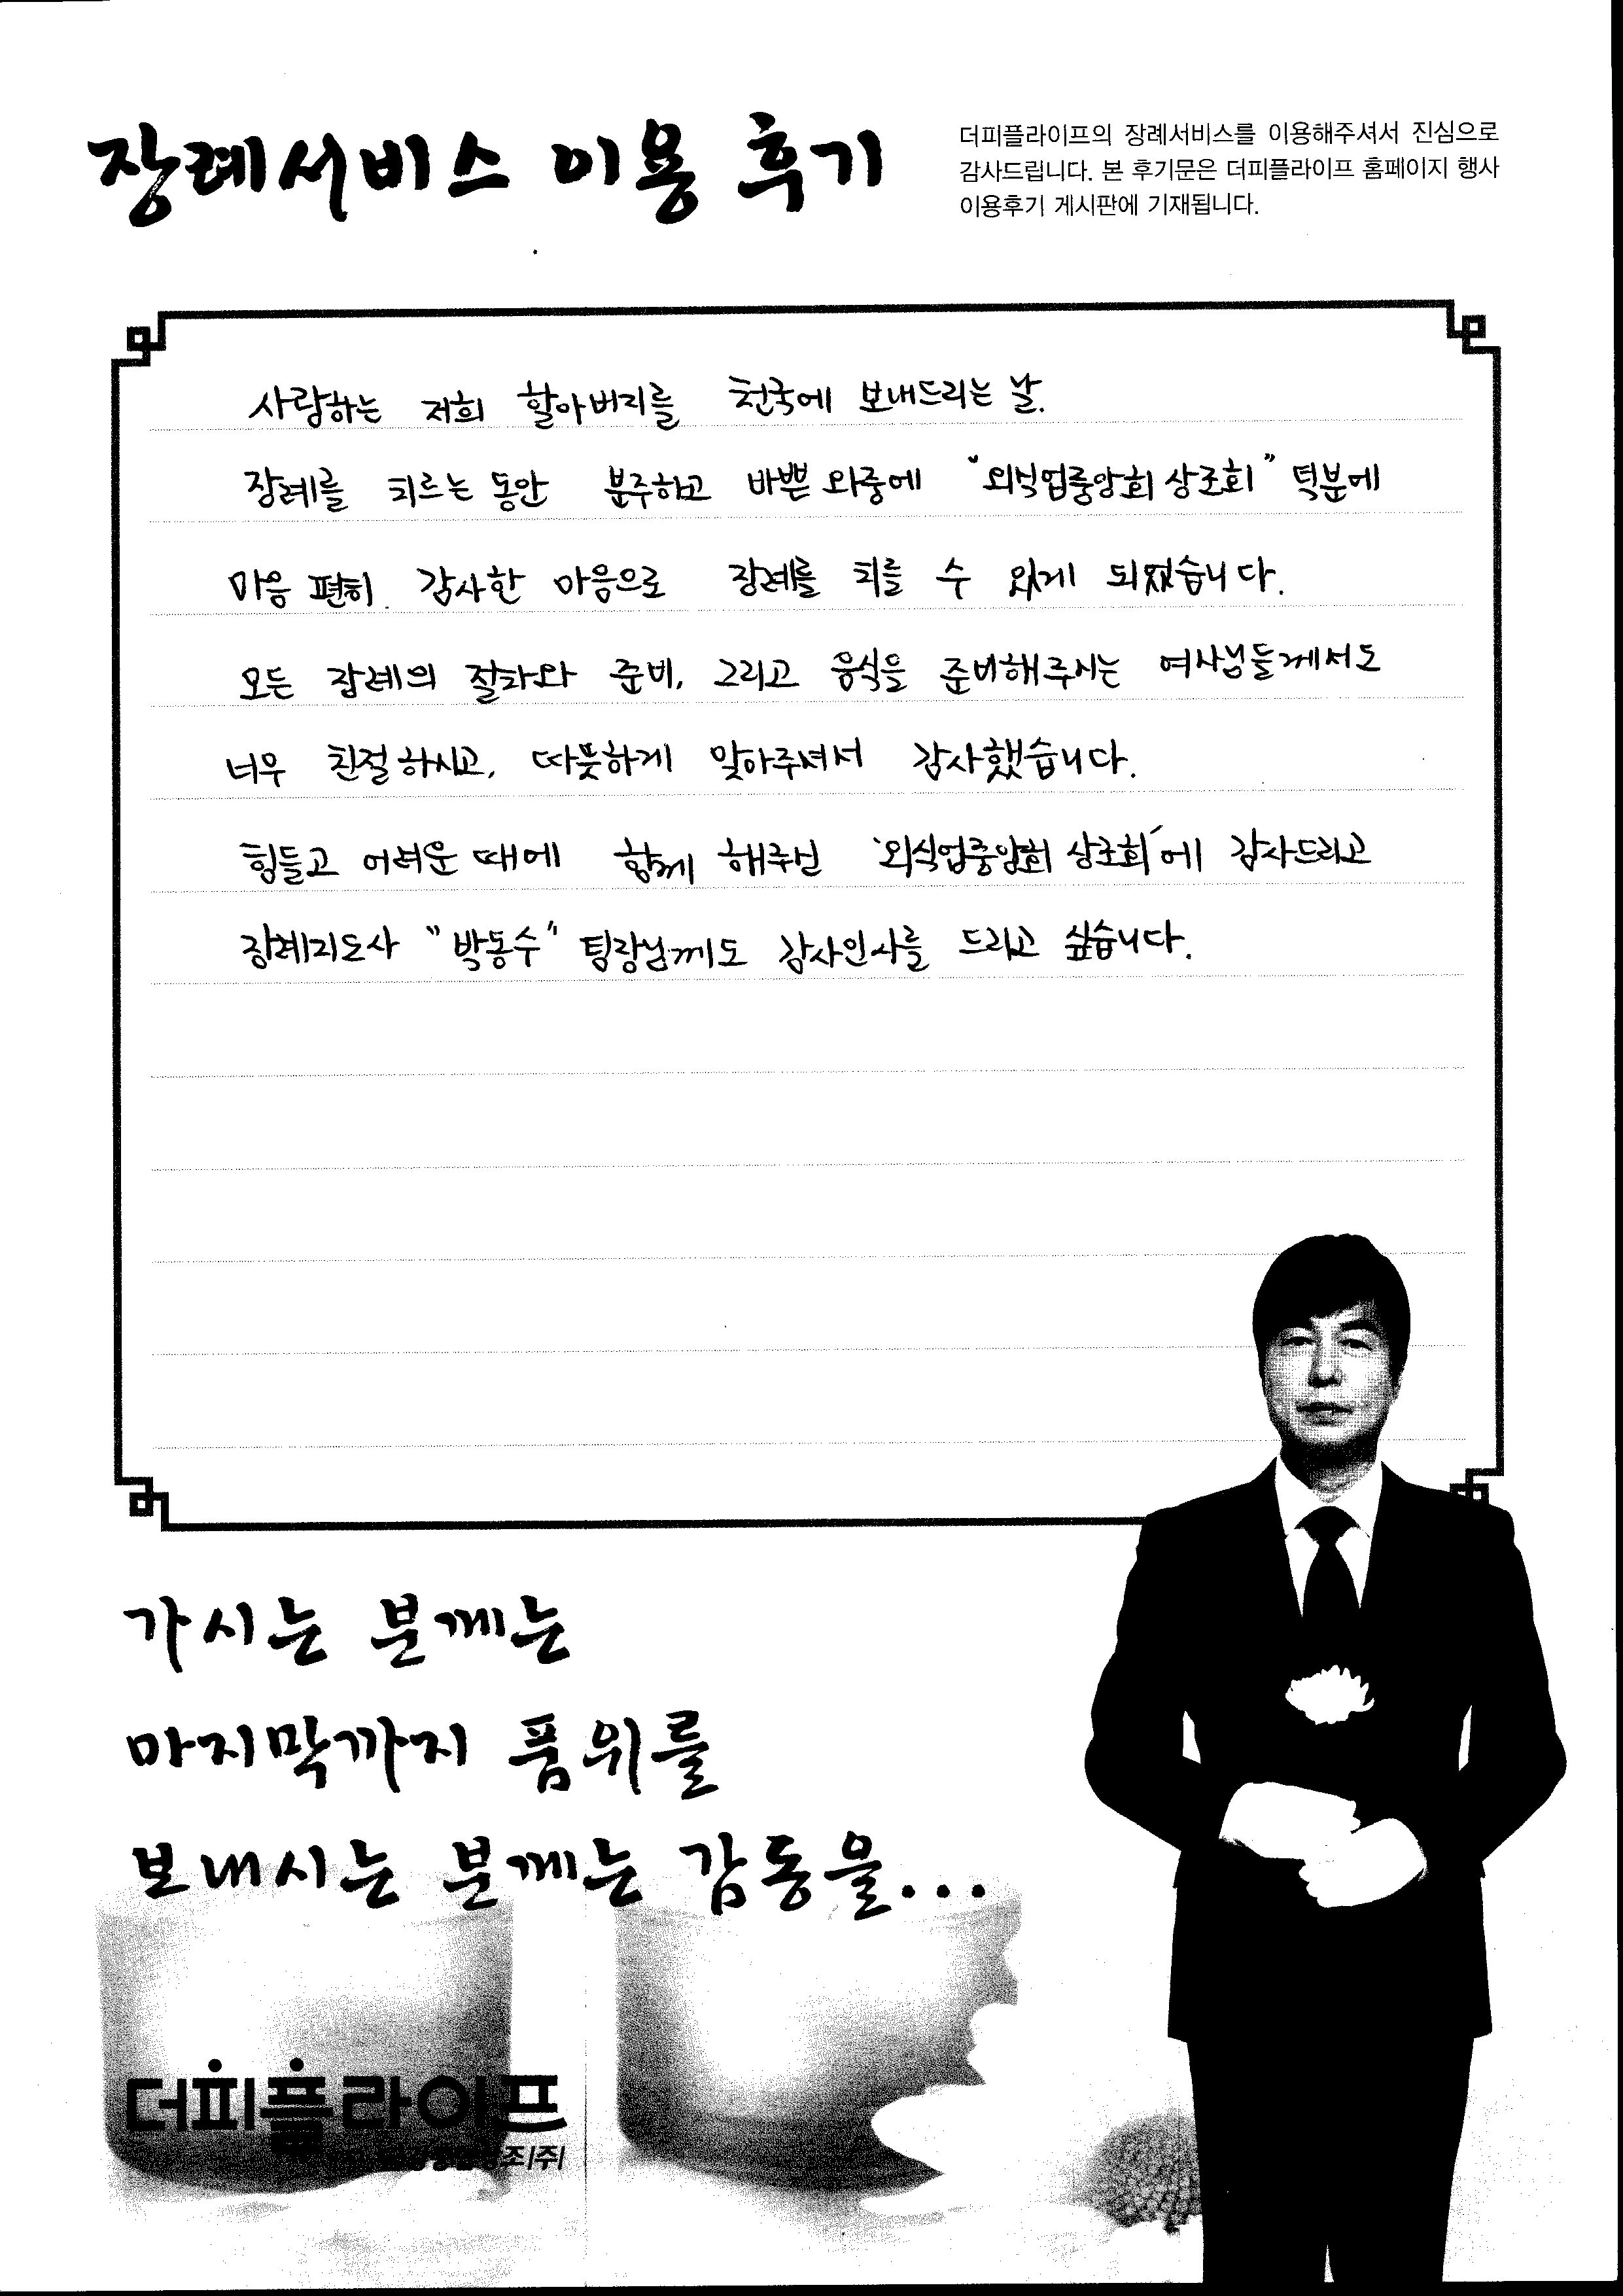 장례서비스 이용 후기
더피플라이프의 장례서비스를 이용해주셔서 진심으로
감사드립니다. 본 후기문은 더피플라이프 홈페이지 행사
이용후기 게시판에 기재됩니다.
사랑하는 저희 할아버지를 천국에 보내드리는 날.
장례를 치르는 동안 분주하고 바쁜 와중에 "외식업중앙회 상조회" 덕분에
마음 편히 감사한 마음으로 장례를 치를 수 있게 되었습니다.
모든 장례의 절차와 준비, 그리고 음식을 준비해주시는 여사님들께서도
너무 친절하시고, 따뜻하게 맞아주셔서 감사했습니다.
힘들고 어려운 때에 함께 해주신 '외식업중앙회 상조회'에 감사드리고
장례지도사 "박동수" 팀장님께도 감사인사를 드리고 싶습니다.
가시는 분께는
마지막까지 품위를
보내시는 분께는 감동을...
더피플라이프